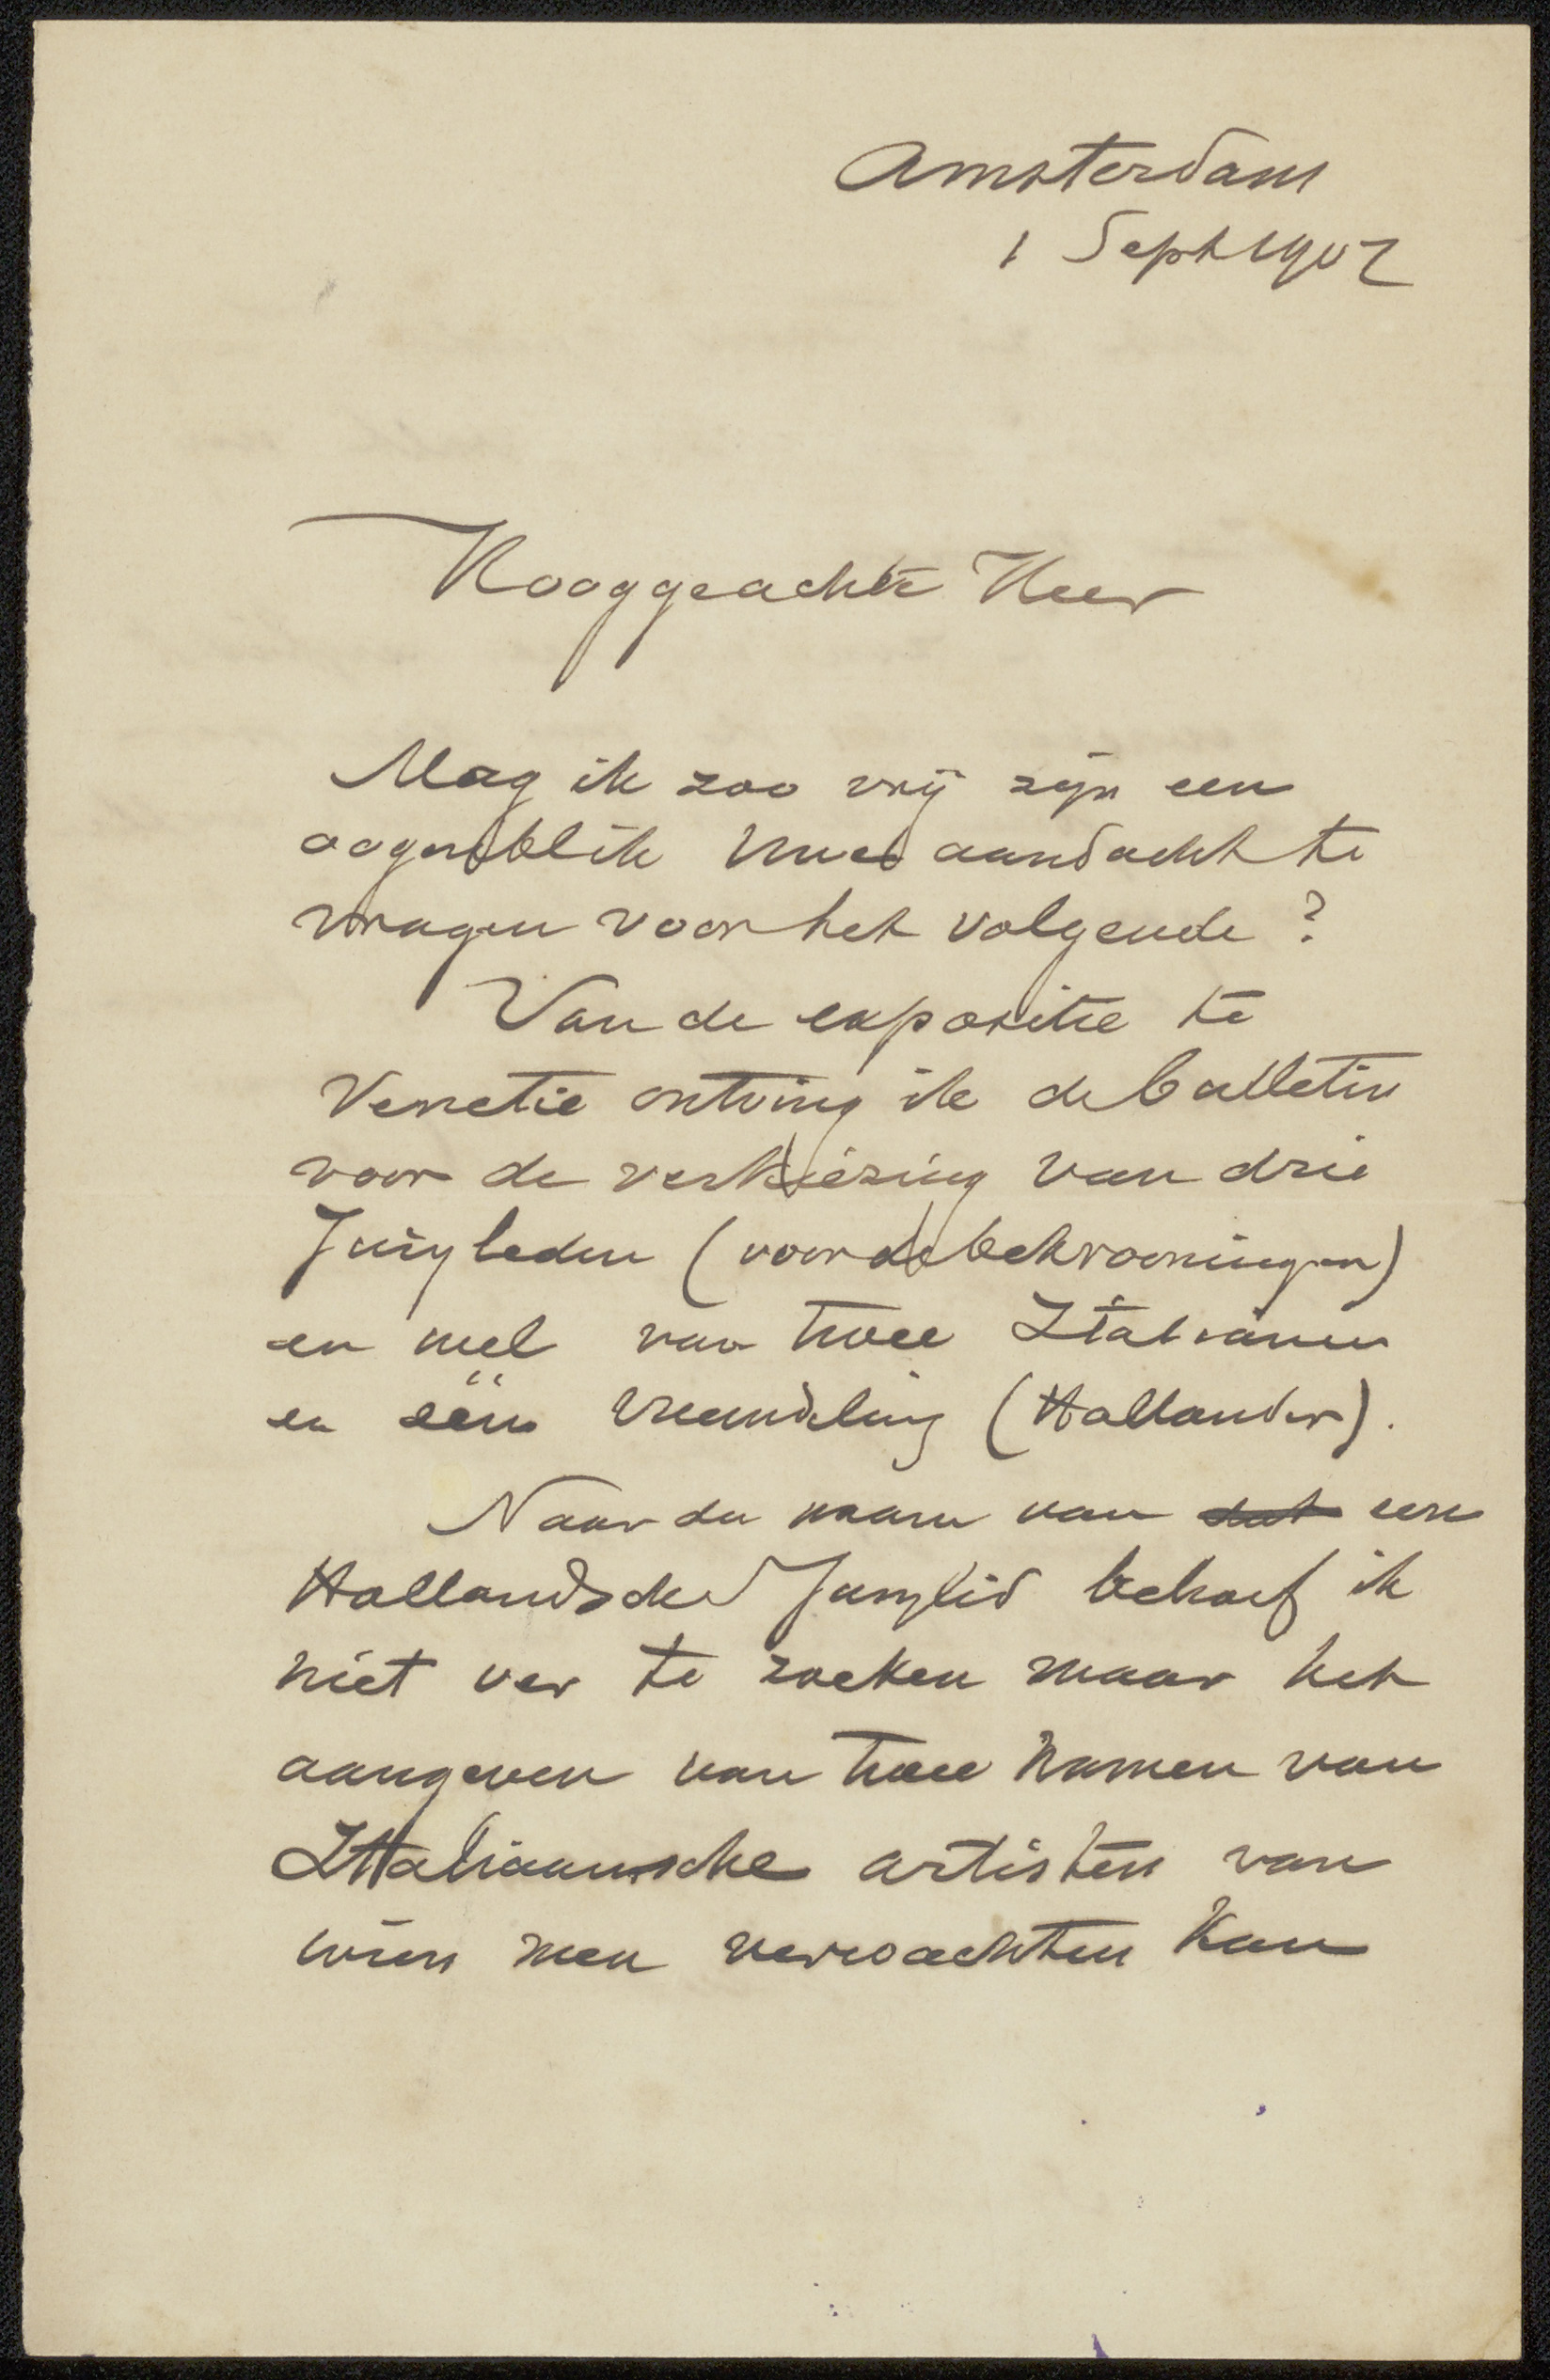 Amsterdam
1 Sept 1902
Hooggeachte Heer
Mag ik zoo vrij zijn een
oogenblik Uwe aandacht te
vragen voor het volgende ?
Van de expositie te
Venetie ontving ik de bulletin
voor de verkiezing van drie
Juryleden (voor de bekrooningen)
en wel van twee Italianen
en één vreemdeling (Hollander).
Naar den naam van dat een
Hollandsche Jurylid behoef ik
niet ver te zoeken maar het
aangeven van twee namen van
Italiaansche artisten van
wien men verwachten kan